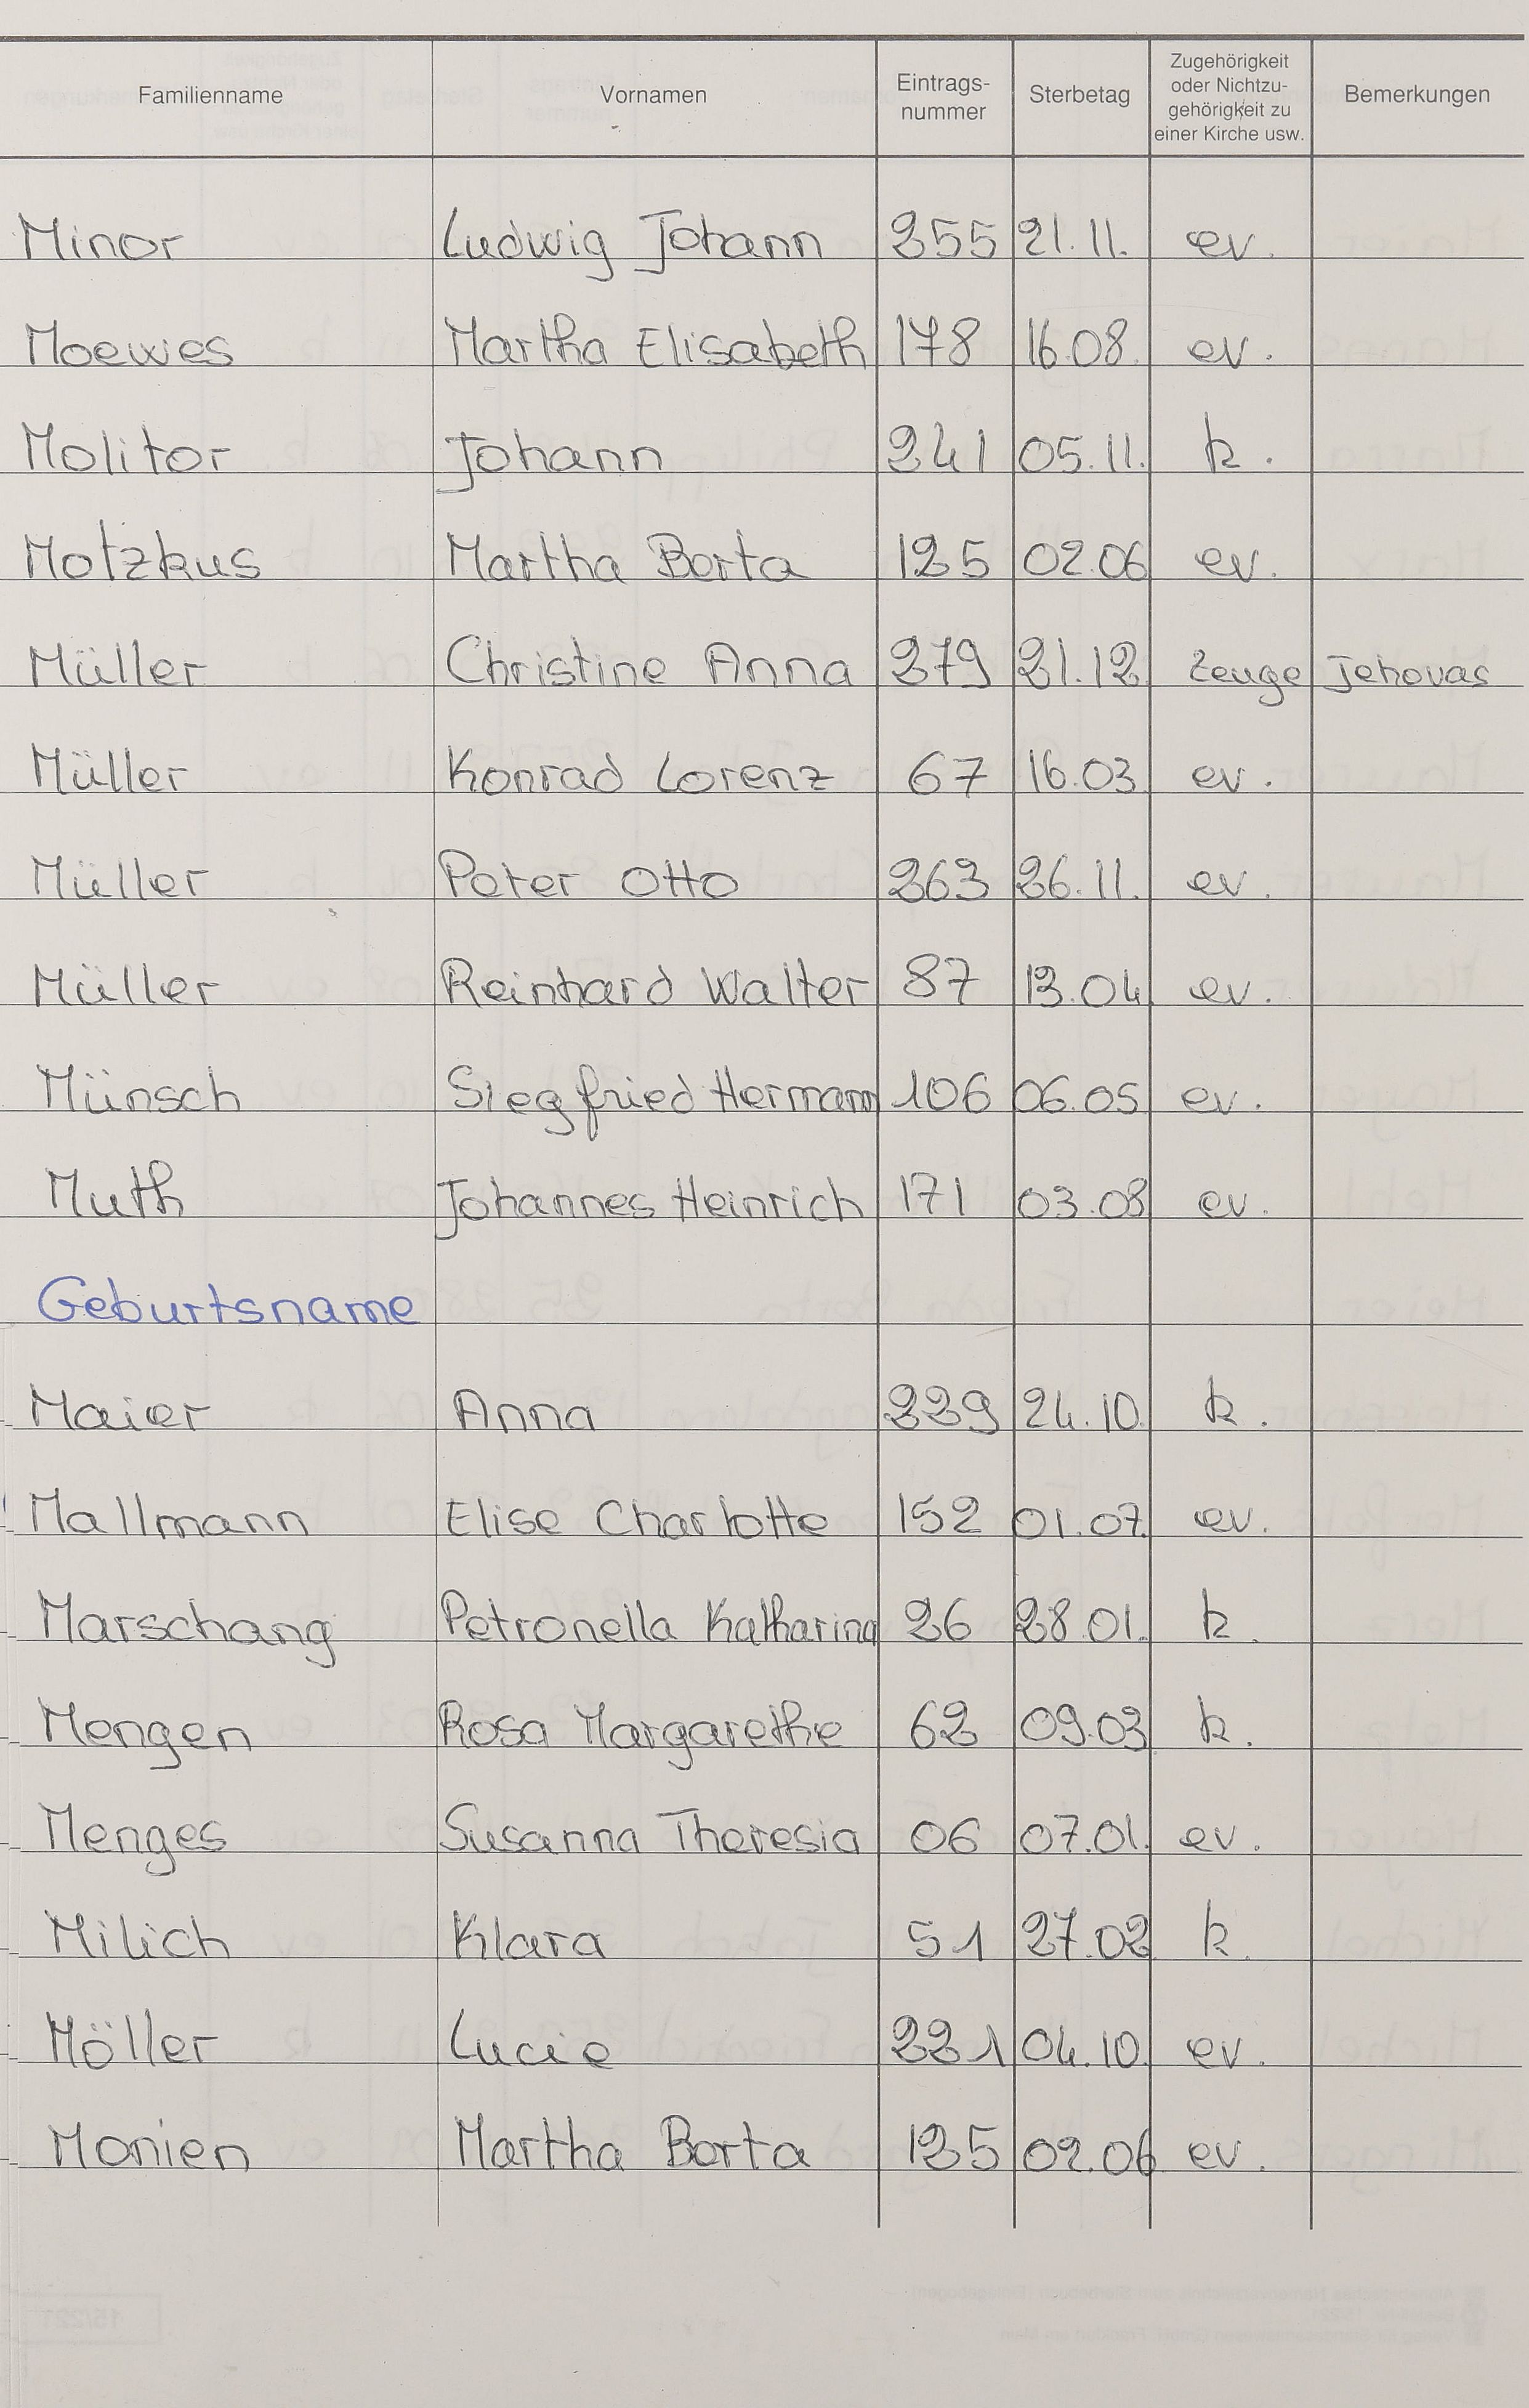 Familienname Vornamen Eintrags-nummer Sterbetag Zugehörigkeit oder Nichtzu-gehörigkeit zu einer Kirche usw. Bemerkungen
Minor Ludwig Johann 255 21.11. ev.
Moewes Martha Elisabeth 178 16.08. ev.
Molitor Johann 241 05.11. k.
Motzkus Martha Berta 125 02.06 ev.
Müller Christine Anna 279 21.12. Zeuge Jehovas
Müller Konrad Lorenz 67 16.03 ev.
Müller Peter Otto 263 26.11. ev.
Müller Reinhard Walter 87 13.04 ev.
Münsch Siegfried Hermann 106 06.05 ev.
Muth Johannes Heinrich 171 03.08 ev.
Geburtsname
Maier Anna 239 24.10. k.
Mallmann Elise Charlotte 152 01.07. ev.
Marschang Petronella Katharina 26 28.01. k.
Mengen Rosa Margarethe 62 09.03 k.
Menges Susanna Theresia 06 07.01. ev.
Milich Klara 51 27.02 k.
Möller Lucie 221 04.10. ev.
Monien Martha Berta 125 02.06 ev.